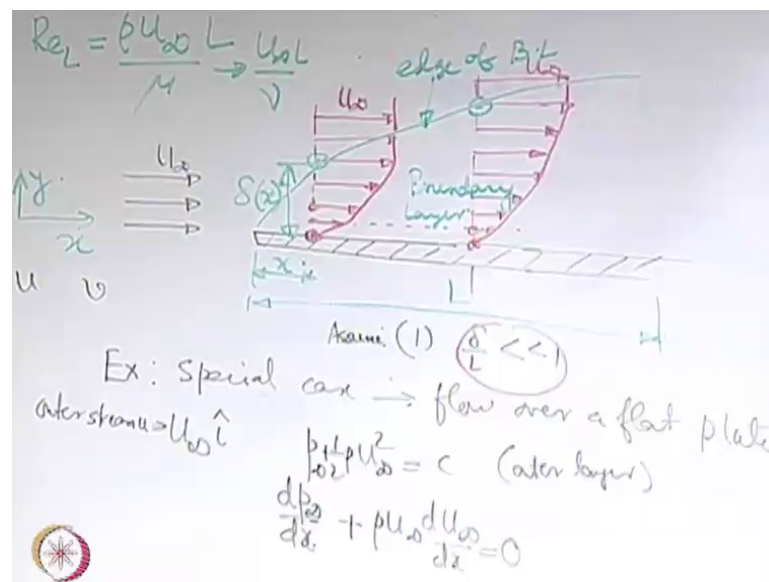 Re_L = ρU∞ L / μ → U∞ L / ν
edge of B.L.
U∞
U∞
y
x
δ(x)
Boundary
Layer
u v
x
L
(1) δ/L << 1
Ex: Special case → flow over a flat plate
U∞ î
p∞ + 1/2 ρU∞² = c (outer layer)
dp∞/dx + ρU∞ dU∞/dx = 0